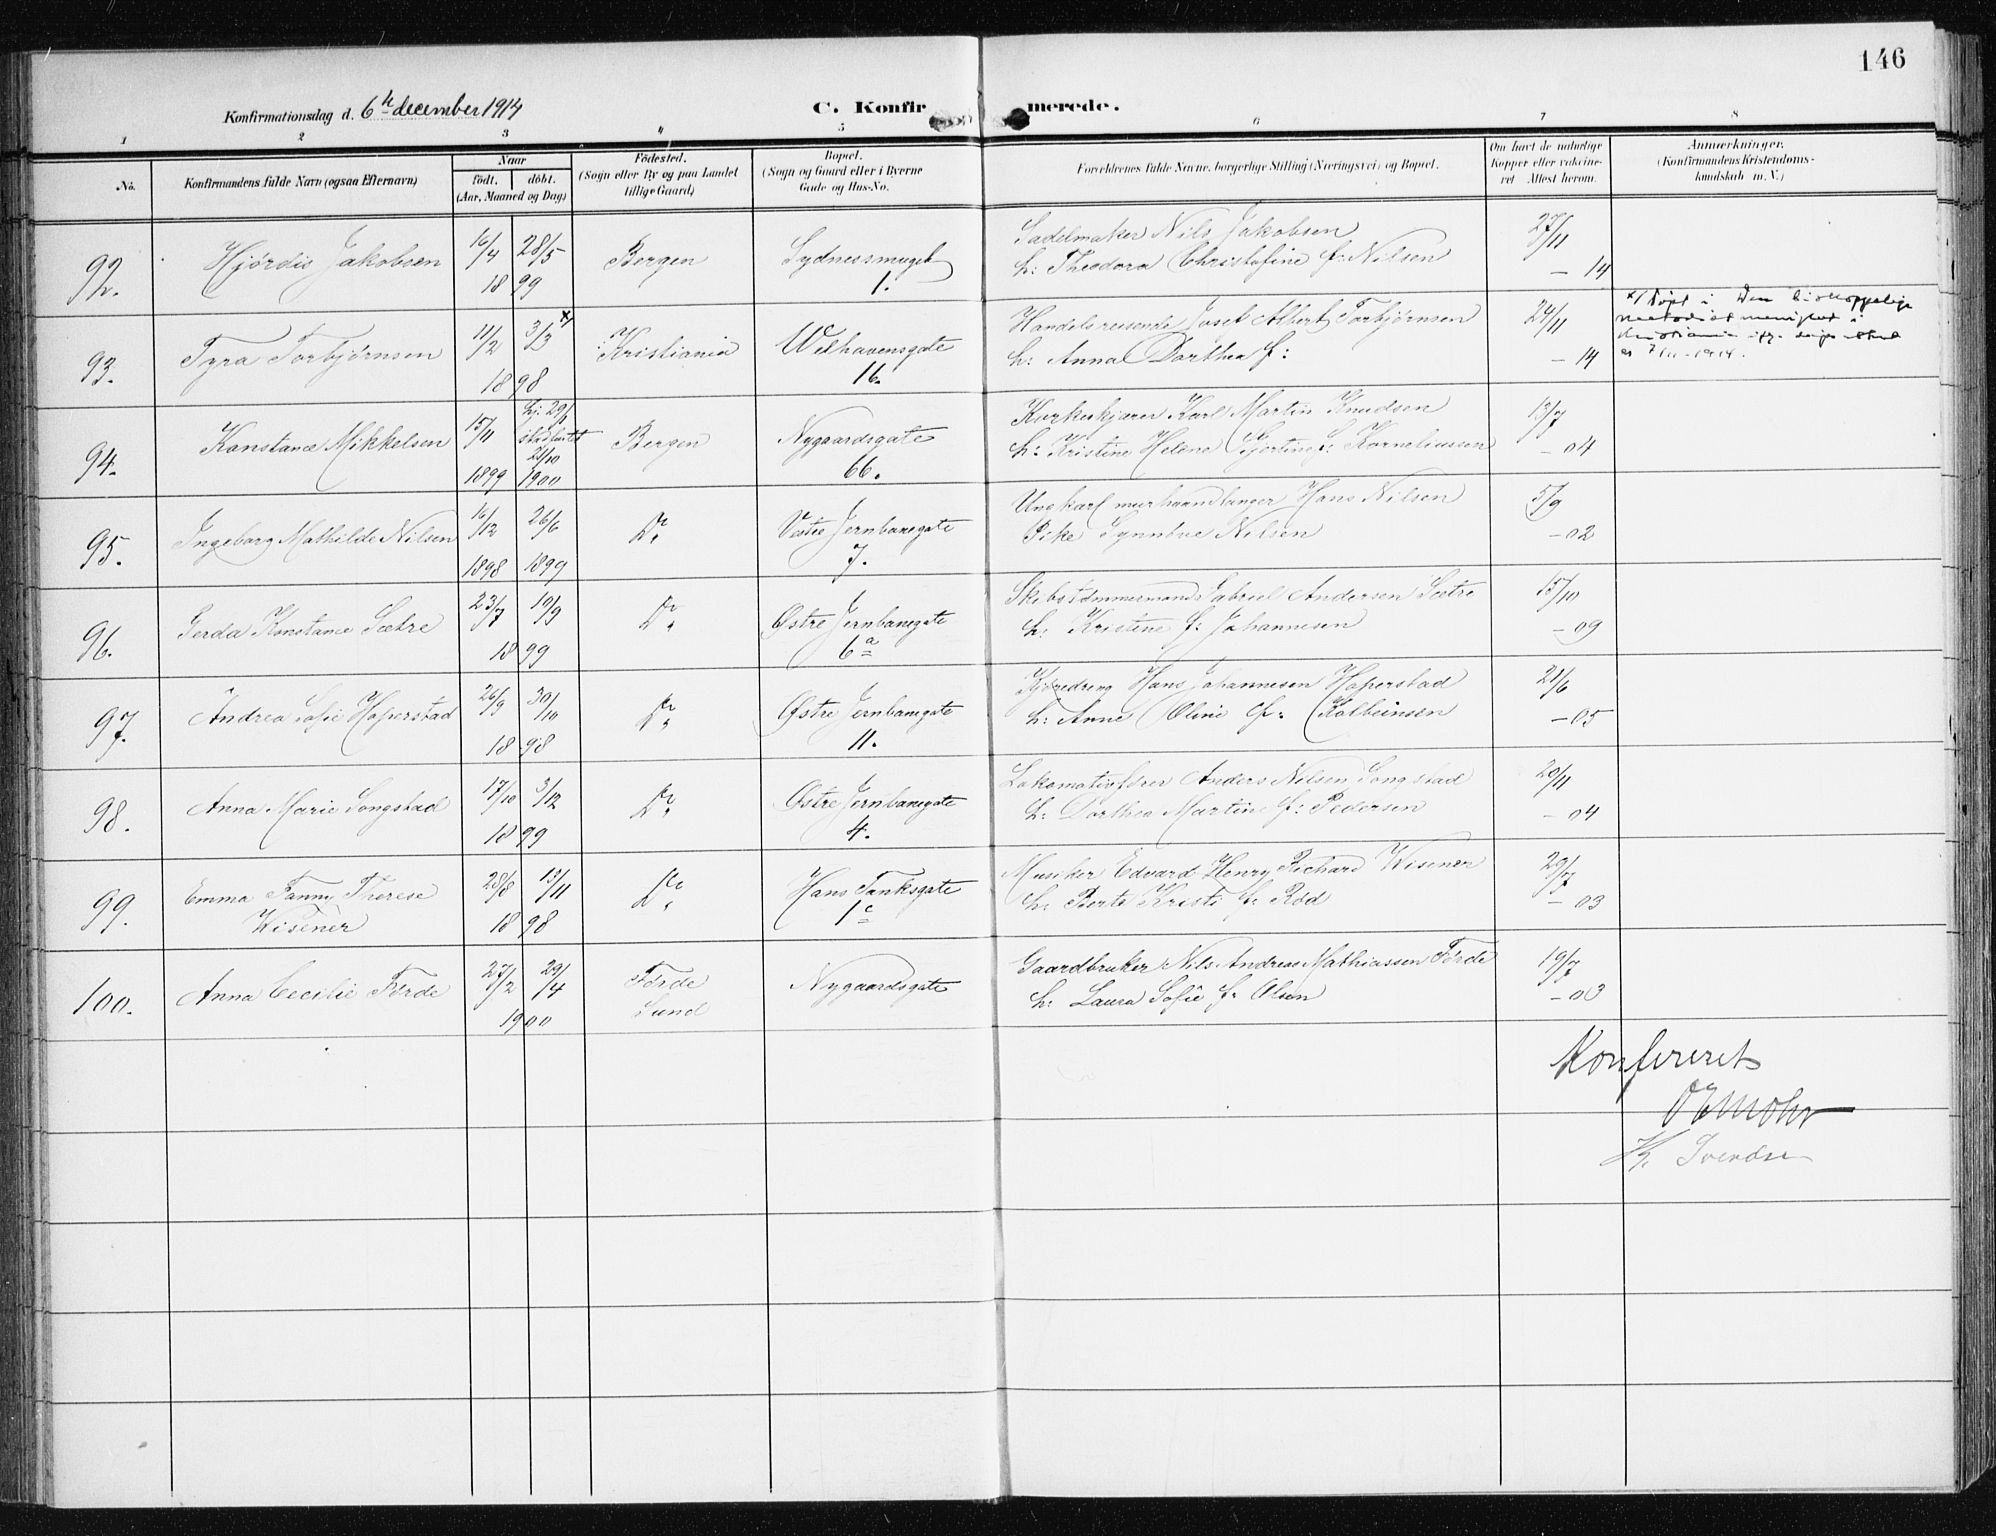 146
Konfirmationsdag d. 6te december 1914
C. Konfirmerede.
1 2 3 4 5 6 7 8
No.
Konfirmandens fulde Navn (ogsaa Efternavn)
Naar
födt. döbt.
(Aar, Maaned og Dag)
Födested.
(Sogn eller By og paa Landet
tillige Gaard)
Bopæl.
(Sogn og Gaard eller i Byerne
Gade og Hus-No.
Forældrenes fulde Navne, borgerlige Stilling (Næringsvei) og Bopæl.
Om havt de naturlige
Kopper eller vakcine-
ret Attest herom.
Anmærkninger.
(Konfirmandens Kristendoms-
kundskab m. V.)
92. Hjördis Jakobsen 16/4 28/5 1899 Bergen Sydnessmuget 1.
Sadelmaker Nils Jakobsen 27/11
h: Theodora Christofine f: Nilsen - 14
93. Tyra Torbjørnsen 11/2 3/3 x) 1898 Kristiania Welhavensgate 16.
Handelsreisende Josef Albert Torbjørnsen 24/11
h: Anna Dorthea f: - 14
x) Døpt i Den biskoppelige
metodistmenighet i
Kristiania
94. Konstance Mikkelsen 15/11 1899 hj: 29/1 stadfæstet 21/10 1900 Bergen Nygaardsgate 66.
Korkeskjærer Karl Martin Knudsen 13/7
h: Kristine Helene f: Korneliussen - 04
95. Ingeborg Mathilde Nilsen 16/12 1898 26/6 1899 Do. Vestre Jernbanegate 7.
Ungkarl murhaandlanger Hans Nilsen 5/9
Pike Synnöve Nilsen - 02
96. Gerda Konstance Sætre 23/7 19/9 1899 Do. Østre Jernbanegate 6a
Skibstömmermand Gabriel Andersen Sætre 15/10
h: Kristine f: Johannesen - 09
97. Andrea Sofie Hoperstad 26/9 30/10 1898 Do. Østre Jernbanegate 11.
Kjøredreng Hans Johannesen Hoperstad 21/6
h: Anne Oline f: Kolbeinsen - 05
98. Anna Marie Songstad 17/10 3/12 1899 Do. Østre Jernbanegate 4.
Lokomotivförer Anders Nilsen Songstad 20/11
h: Dorthea Martine f: Pedersen - 04
99. Emma Fanny Therese 28/8 13/11 1898 Do. Hans Tanksgate 1c
Wisener
Musiker Edvard Henry Richard Wisener 29/7
h: Berte Kristi f: Röd - 03
100. Anna Cecilie Förde 27/2 29/4 1900 Förde Sund Nygaardsgate
Gaardbruker Nils Andreas Mathiassen Förde 19/7
h: Laura Sofie f: Olsen - 03
Konfereret
OEMohr
K. Svendsen